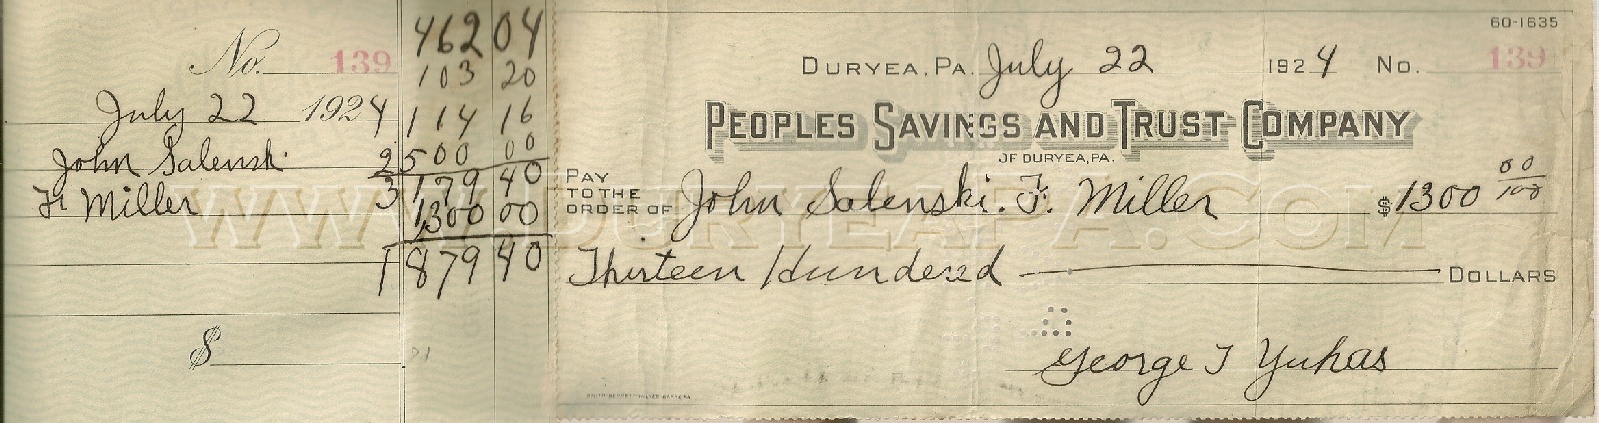 No. 139
July 22 1924
John Salenski
Fr Miller
$
462 04
103 20
114 16
2500 00
3179 40
1300 00
1879 40
60-1635
DURYEA, PA. July 22 1924 No. 139
PEOPLES SAVINGS AND TRUST COMPANY
OF DURYEA, PA.
PAY
TO THE
ORDER OF John Salenski. Fr. Miller $1300 00/100
Thirteen Hundered DOLLARS
George T Yuhas
WWW.DURYEAPA.COM